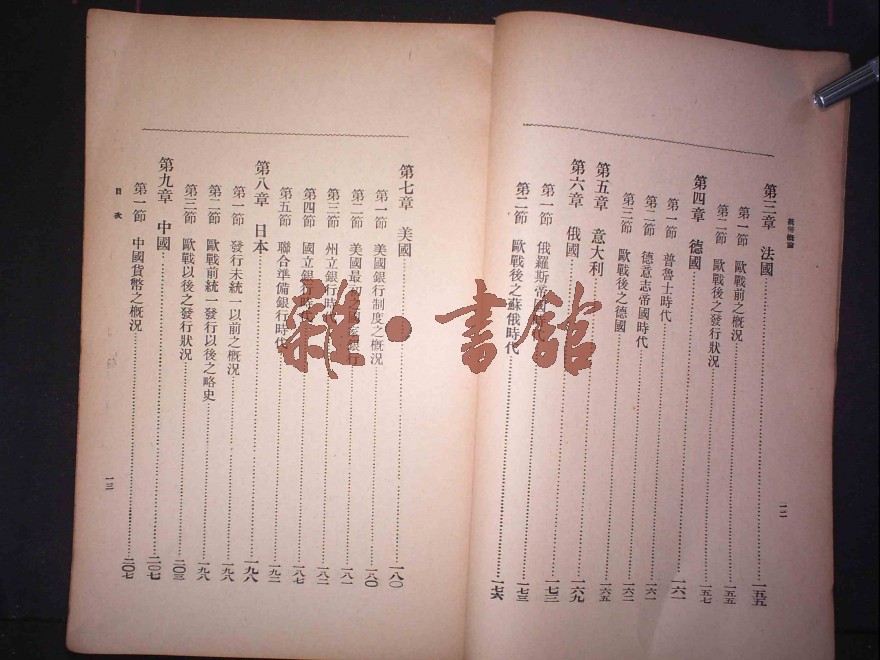 第三章 法國 一五五
第一節 歐戰前之概況 一五五
第二節 歐戰後之發行狀況 一五七
第四章 德國 一六一
第一節 普魯士時代 一六一
第二節 德意志帝國時代 一六一
第三節 歐戰後之德國 一六二
第五章 意大利 一六五
第六章 俄國 一六九
第一節 俄羅斯帝國時代 一七三
第二節 歐戰後之蘇俄時代 一七六
一二
第七章 美國 一八〇
第一節 美國銀行制度之概況 一八〇
第二節 美國最初之國家銀行 一八一
第三節 州立銀行時代 一八二
第四節 國立銀行時代 一八七
第五節 聯合準備銀行時代 一九二
第八章 日本 一九六
第一節 發行未統一以前之概況 一九六
第二節 歐戰前統一發行以後之略史 一九六
第三節 歐戰以後之發行狀況 二〇三
第九章 中國 二〇七
第一節 中國貨幣之概況 二〇七
目次
一三
雜·書館